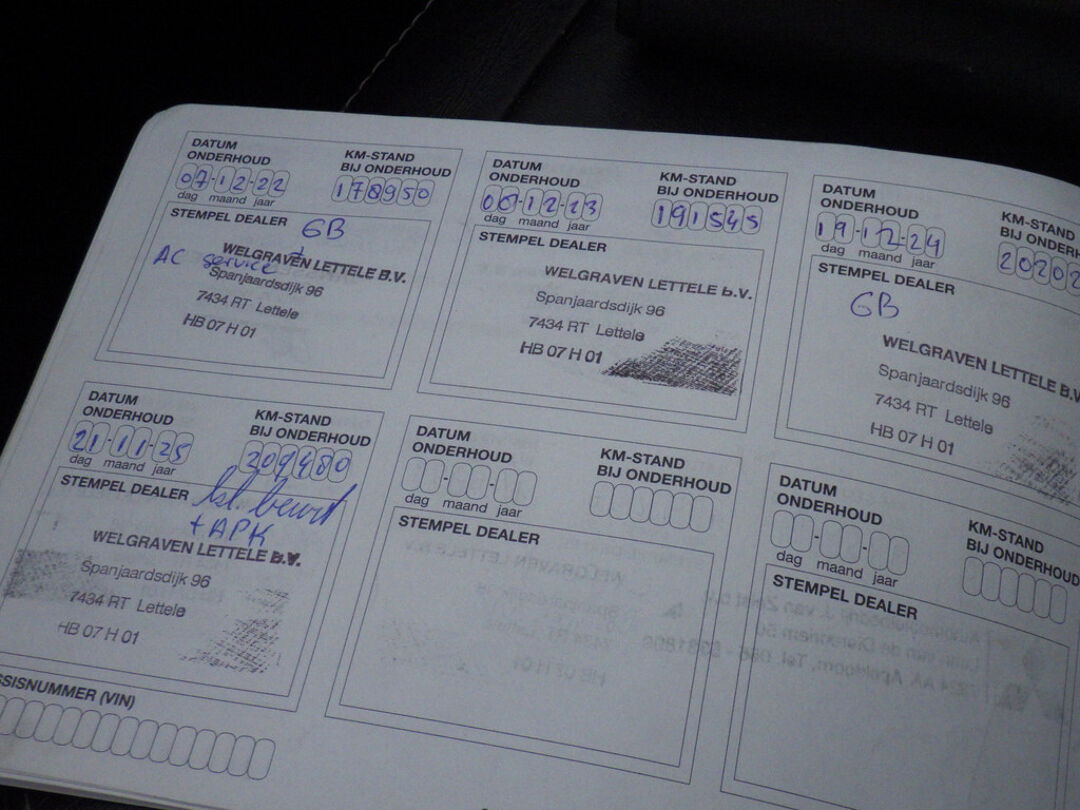 DATUM
ONDERHOUD
KM-STAND
BIJ ONDERHOUD
07-12-22
178950
dag maand jaar
STEMPEL DEALER
GB
+
AC service
WELGRAVEN LETTELE B.V.
Spanjaardsdijk 96
7434 RT Lettele
HB 07 H 01
DATUM
ONDERHOUD
KM-STAND
BIJ ONDERHOUD
06-12-23
191545
dag maand jaar
STEMPEL DEALER
WELGRAVEN LETTELE B.V.
Spanjaardsdijk 96
7434 RT Lettele
HB 07 H 01
DATUM
ONDERHOUD
KM-STAND
BIJ ONDERH
19-12-24
20202
dag maand jaar
STEMPEL DEALER
GB
WELGRAVEN LETTELE B.V
Spanjaardsdijk 96
7434 RT Lettele
HB 07 H 01
DATUM
ONDERHOUD
KM-STAND
BIJ ONDERHOUD
21-11-25
209480
dag maand jaar
STEMPEL DEALER
kl. beurt
+ APK
WELGRAVEN LETTELE B.V.
Spanjaardsdijk 96
7434 RT Lettele
HB 07 H 01
DATUM
ONDERHOUD
KM-STAND
BIJ ONDERHOUD
dag maand jaar
STEMPEL DEALER
DATUM
ONDERHOUD
KM-STAND
BIJ ONDERHOUD
dag maand jaar
STEMPEL DEALER
SSISNUMMER (VIN)